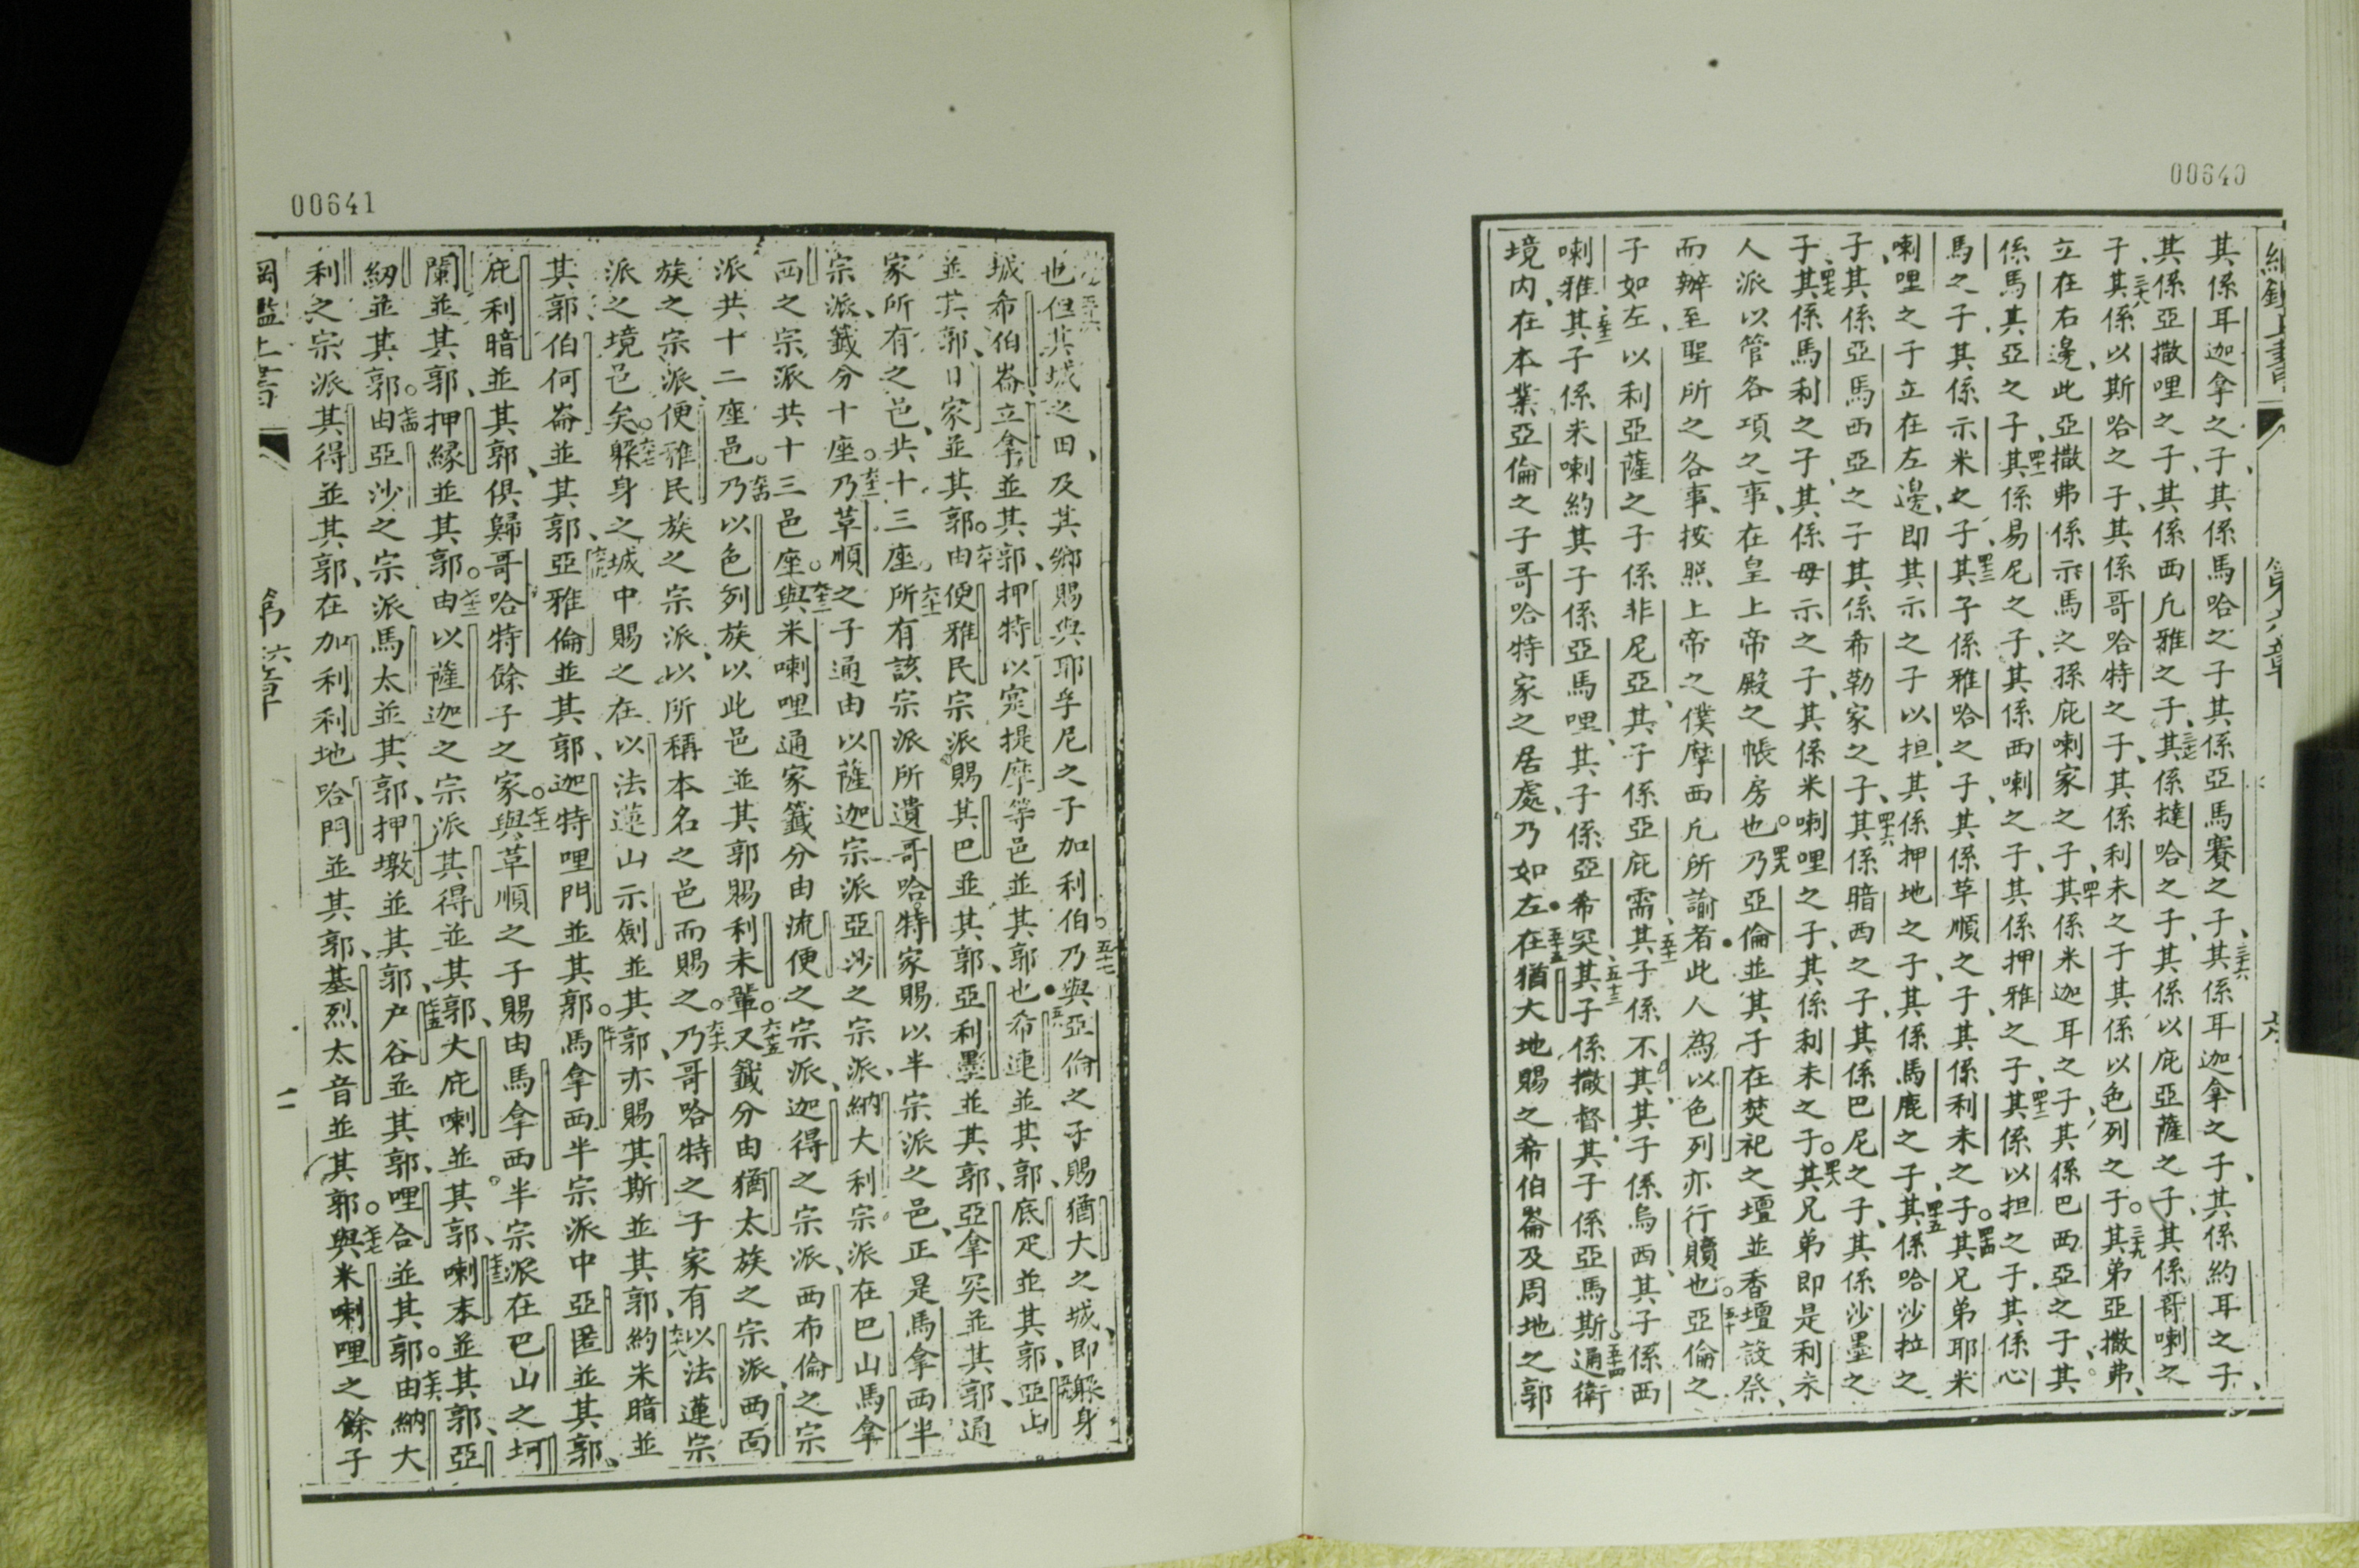 00640
第六章
六
其係耳迦拿之子、其係馬哈之子其係亞馬賽之子、三六其係耳迦拿之子、其係約耳之子、
其係亞撒哩之子、其係西凡雅之子、三七其係撻哈之子、其係以庇亞薩之子、其係哥喇之
子、三八其係以斯哈之子、其係哥哈特之子、其係利未之子其係以色列之子。三九其弟亞撒弗、
立在右邊、此亞撒弗係示馬之孫庇喇家之子、四十其係米迦耳之子其係巴西亞之子、其
係馬其亞之子、四一其係易尼之子、其係西喇之子、其係押雅之子、四二其係以担之子、其係心
馬之子、其係示米之子、四三其子係雅哈之子、其係草順之子、其係利未之子。四四其兄弟耶米
喇哩之子立在左邊、即其示之子以担、其係押地之子、其係馬鹿之子、四五其係哈沙拉之
子、其係亞馬西亞之子其係希勒家之子、四六其係暗西之子、其係巴尼之子、其係沙墨之
子、四七其係馬利之子、其係母示之子、其係米喇哩之子、其係利未之子。四八其兄弟即是利未
人派以管各項之事、在皇上帝殿之帳房也。四九乃亞倫並其子在焚祀之壇並香壇設祭、
而辦至聖所之各事、按照上帝之僕摩西凡所諭者、此人為以色列亦行贖也。五十亞倫之
子如左、以利亞薩之子係非尼亞、其子係亞庇需、五一其子係不其、其子係烏西、其子係西
喇雅、五二其子係米喇約其子係亞馬哩、其子係亞希突、五三其子係撒督、其子係亞馬斯。五四通衛
境内、在本業亞倫之子哥哈特家之居處、乃如左、五五在猶大地賜之希伯崙及周地之郭
00641
五六也但其城之田、及其鄉賜與耶孚尼之子加利伯。五七乃與亞倫之子賜猶大之城、即躲身
城希伯崙、立拿、並其郭、押特以窕提摩等邑並其郭也、希連並其郭、底疋並其郭、亞山
並其郭、日家並其郭。六十由便雅民宗派賜其巴並其郭、亞利墨並其郭、亞拿突並其郭、通
家所有之邑、共十三座。六一所有該宗派所遺哥哈特家賜以半宗派之邑、正是馬拿西半
宗派、籤分十座。六二乃草順之子通由以薩迦宗派亞沙之宗派、納大利宗派在巴山馬拿
西之宗派共十三邑座。六三與米喇哩通家籤分由流便之宗派、迦得之宗派、西布倫之宗
派共十二座邑。六四乃以色列族以此邑並其郭賜利未輩。六五又籤分由猶太族之宗派、西面
族之宗派、便雅民族之宗派、以所稱本名之邑而賜之。六六乃哥哈特之子家有以法蓮宗
派之境邑矣。六七躲身之城中賜之在以法蓮山示劍並其郭、亦賜其斯並其郭、六八約米暗並
其郭、伯何崙並其郭、六九亞雅倫並其郭、迦特哩門並其郭。七十馬拿西半宗派中亞匿並其郭、
庇利暗並其郭、俱歸哥哈特餘子之家。七一與草順之子賜由馬拿西半宗派在巴山之坷
闌並其郭、押緣並其郭。七二由以薩迦之宗派其得並其郭、大庇喇並其郭、七三喇末並其郭、亞
紉並其郭。七四由亞沙之宗派馬太並其郭、押墩並其郭、七五户谷並其郭、哩合並其郭。七六由納大
利之宗派其得並其郭、在加利利地哈門並其郭、基烈太音並其郭。七七與米喇哩之餘子
綱鑑上書
第六章